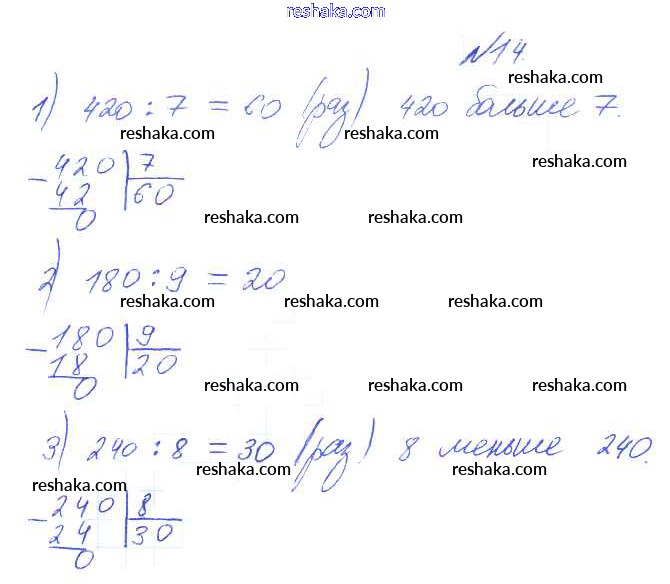 reshaka.com
№14.
reshaka.com
1) 420 : 7 = 60 (раз) 420 больше 7.
reshaka.com reshaka.com reshaka.com
− 420 | 7
42 | 60
0
reshaka.com reshaka.com
2) 180 : 9 = 20
reshaka.com reshaka.com reshaka.com
− 180 | 9
18 | 20
0
reshaka.com reshaka.com reshaka.com
3) 240 : 8 = 30 (раз) 8 меньше 240.
reshaka.com reshaka.com reshaka.com
− 240 | 8
24 | 30
0